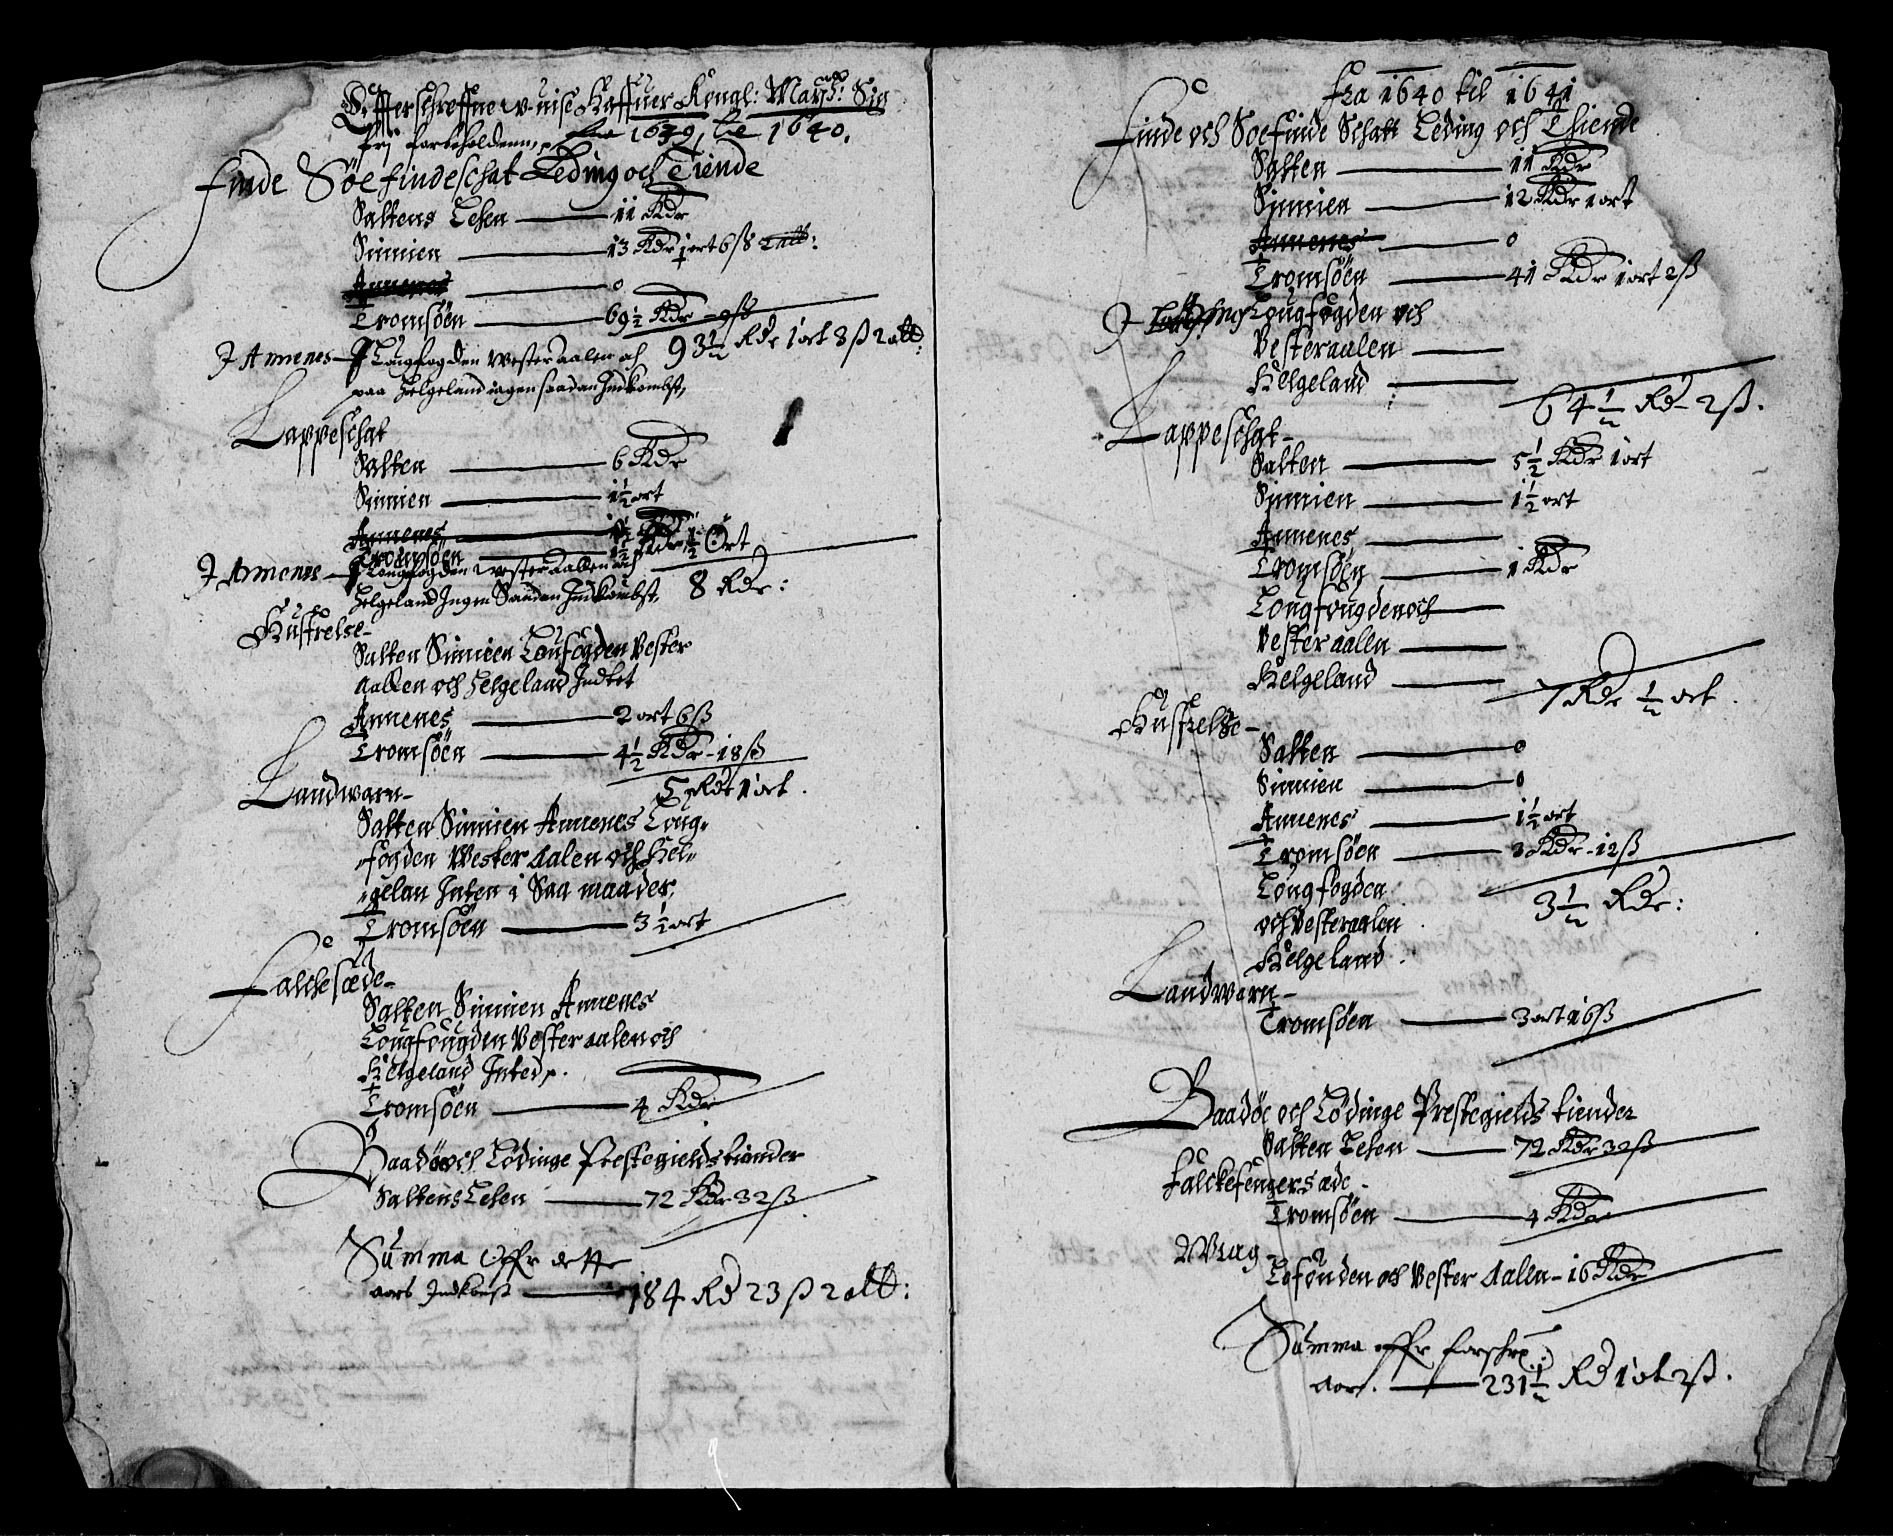 Effterschreffne w-uise Haffuer Kongl: Mayst: Sig
frj forbeholdenn, fra 1639, til 1640.
Finde Söefindeschat Leding och Tiende
Saltens Lehen —— 11 Rdr
Sinnien —— 13 Rdr 1 ort 6 ß 2 alb:
Annenes —— 0
Tromsöen —— 69½ Rdr - 9ß
J Annenes - Langfogden Westeraalen och 93½ Rdr 1 ort 8 ß 2 alb:
paa Helgeland ingen saadan Indkombst,
Lappeschat
Salten —— 6 Rdr
Sinnien —— 1½ ort
Annenes ——
Tromsöen —— 1½ Rdr ½ Ort
J Annenes - Longfogden Westeraallen och
Helgeland Ingen Saadan Indkombst, 8 Rdr:
Husfrelse-
Salten Sinnien Loufogden Vester
Aallen och Helgeland Indtet
Annenes —— 2 ort 6 ß
Tromsöen —— 4½ Rdr - 18 ß
5 Rdr 1 ort.
Landwarn-
Salten Sinnien Annenes Long-
fogden Wester Aalen och Hel-
gelan Inten i Saa maader.
Tromsöen —— 3½ ort
Falchesæde-
Salten Sinnien Annenes
Longfougden Vesteraalen och
Helgeland Inted.
Tromsöen —— 4 Rdr
Baadöe och Lödinge Prestegields tiender
Saltens Lehen —— 72 Rdr 32 ß
Summa Offr dette
aars Indkomst —— 184 Rd 23 ß 2 alb:
Fra 1640 til 1641
Finde och Soefinde Schatt Leding och Thiende
Salten —— 11 Rdr
Sinnien —— 12 Rdr 1 ort
Annenes —— 0
Tromsöen —— 41 Rdr 1 ort 2 ß
J Longfogden och
Vesteraalen ——
Helgeland ——
64½ Rd - 2 ß.
Lappeschat-
Salten —— 5½ Rdr 1 ort
Sinnien —— 1½ ort
Annenes ——
Tromsöen —— 1 Rdr
Longfougden och ——
Vesteraalen ——
Helgeland ——
7 Rdr ½ ort.
Husfrelse-
Salten —— 0
Sinnien —— 0
Annenes —— 1½ ort
Tromsöen —— 3 Rdr - 12 ß
Longfogden
och Vesteraalen
3½ Rdr:
Helgeland.
Landwarn-
Tromsöen —— 3 ort 16 ß
Baadöe och Lödinge Prestegields tiender
Salten Lehen —— 72 Rdr 32 ß
Falckefengersæde-
Tromsöen —— 4 Rdr
Wrag-
Lofouden och Vesteraalen - 16 Rdr
Summa offr forschr:
aar. —— 231½ Rd 1 ort 2 ß.